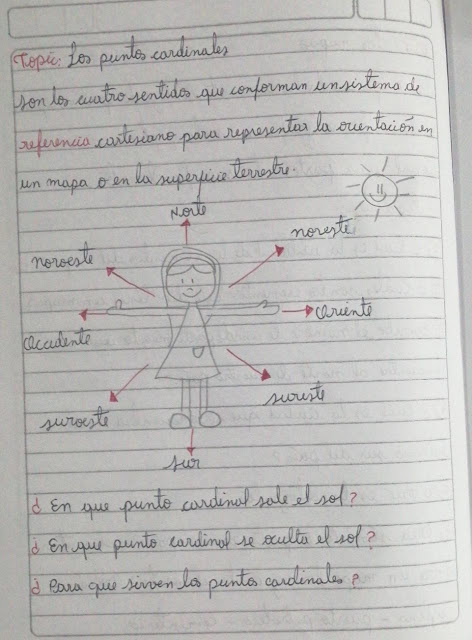 Topic: Los puntos cardinales
son los cuatro sentidos que conforman un sistema de
referencia cartesiano para representar la orientación en
un mapa o en la superficie terrestre.
Norte
noroeste
noreste
Occidente
Oriente
suroeste
sureste
sur
¿En que punto cardinal sale el sol?
¿En que punto cardinal se oculta el sol?
¿Para que sirven los puntos cardinales?